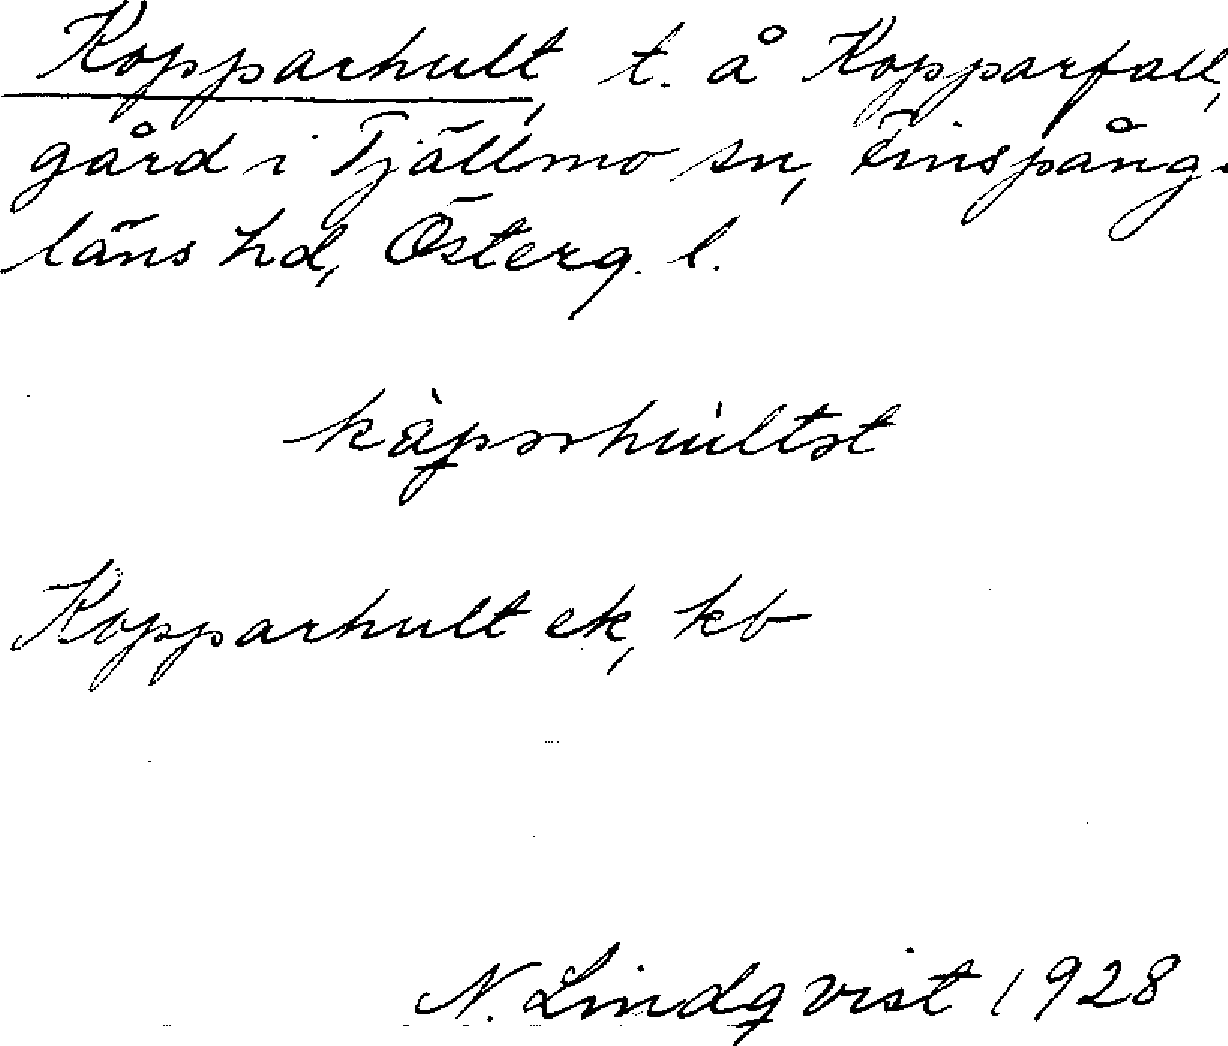 Kopparhult, t. å Kopparfall,
gård i Tjällmo sn, Finspångs
läns hd, Österg. l.
Kopparhult ek, kb
N. Lindqvist 1928